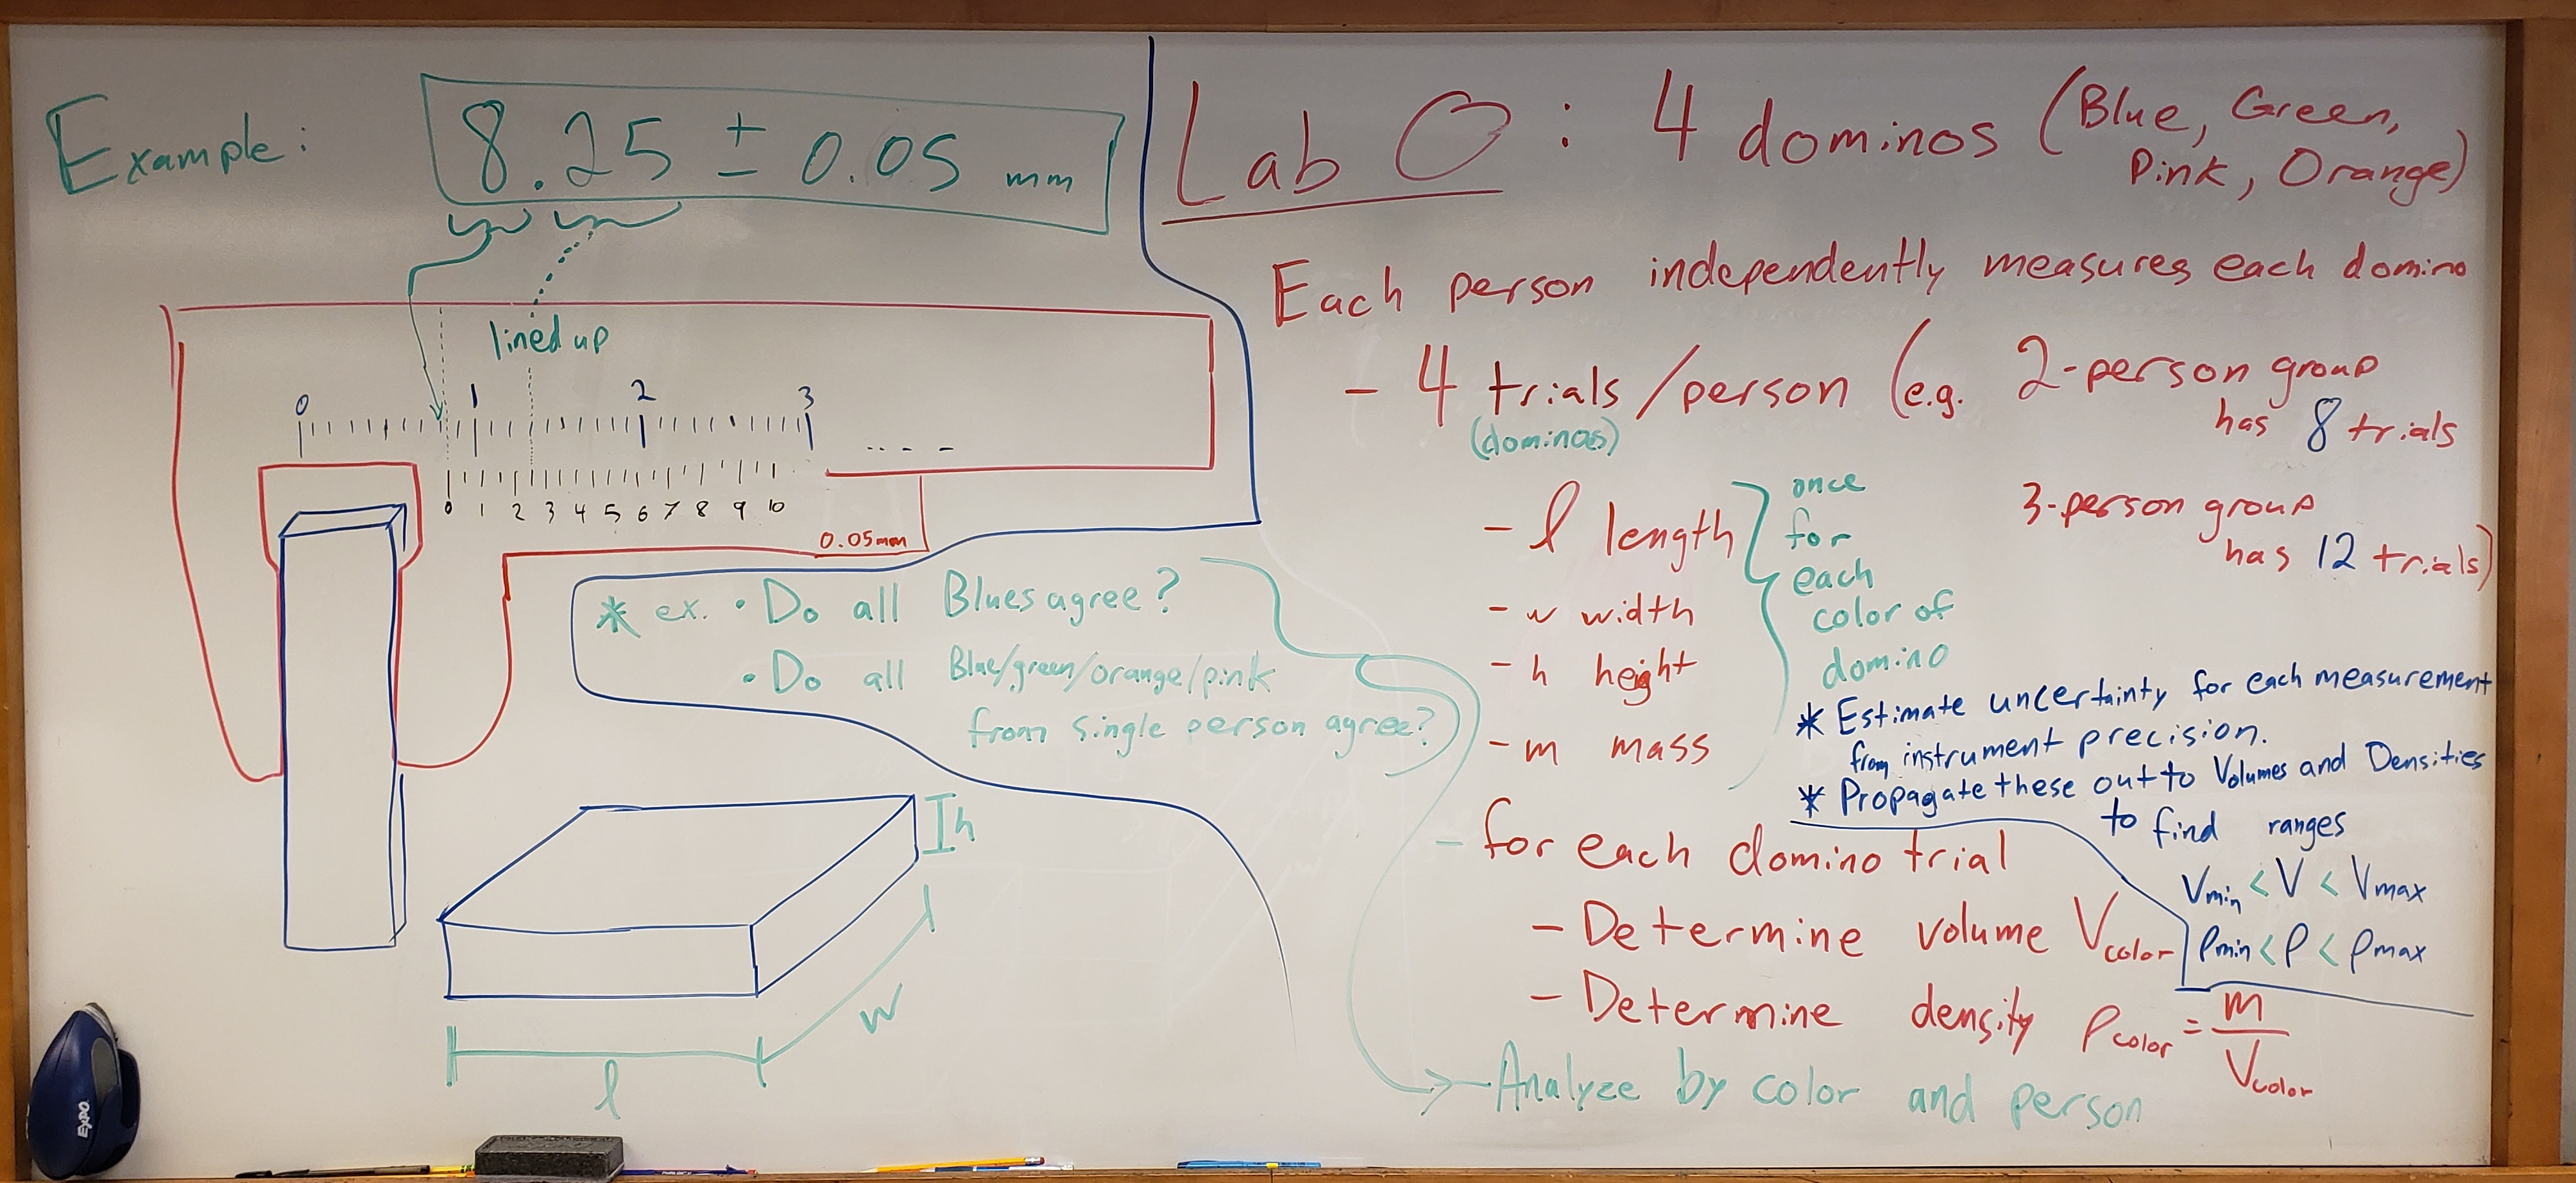 Example: 8.25 ± 0.05 mm
lined up
0 1 2 3
0 1 2 3 4 5 6 7 8 9 10
0.05mm
* ex. • Do all Blues agree?
• Do all Blue/green/orange/pink
from single person agree?
h
w
l
EXPO
Lab 0: 4 dominos (Blue, Green,
Pink, Orange)
Each person independently measures each domino
- 4 trials/person (e.g. 2-person group
(dominos)
has 8 trials
3-person group
has 12 trials)
- l length
- w width
- h height
- m mass
once
for
each
color of
domino
* Estimate uncertainty for each measurement
from instrument precision.
* Propagate these out to Volumes and Densities
to find ranges
Vmin < V < Vmax
ρmin < ρ < ρmax
- for each domino trial
- Determine volume Vcolor
- Determine density ρcolor = m
Vcolor
- Analyze by color and person